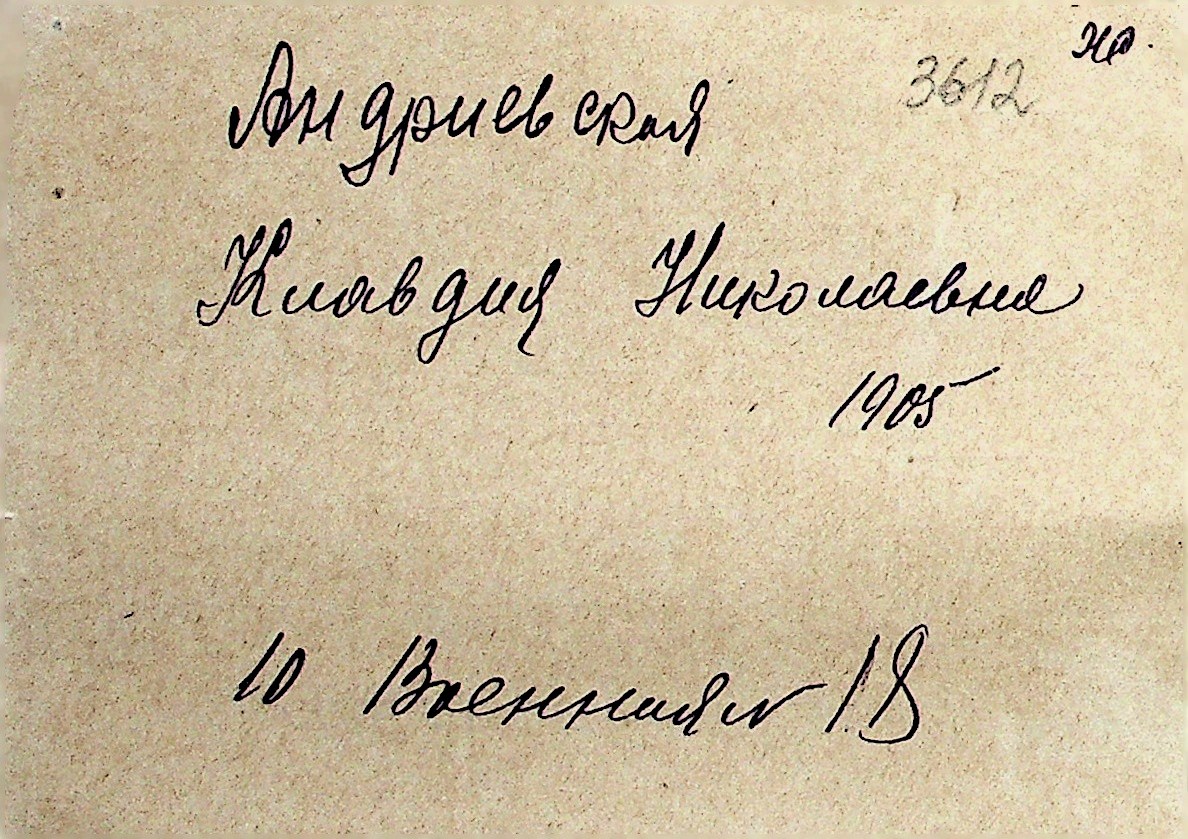 3612
Андриевская
Клавдия Николаевна
1905
10 Военная № 18